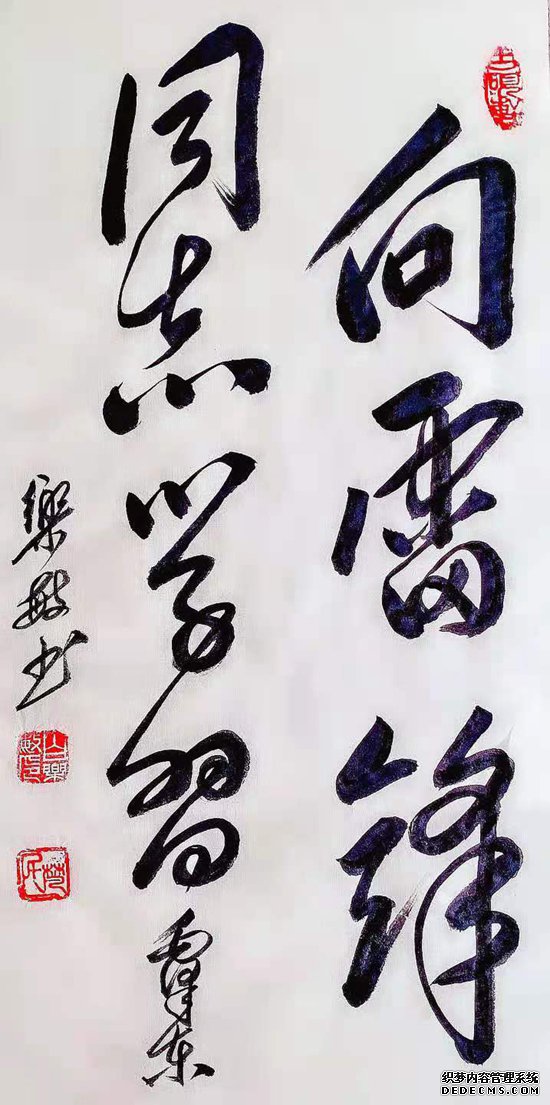 向雷锋
同志学习
毛泽东
樂敏书
织梦内容管理系统
DEDECMS.COM